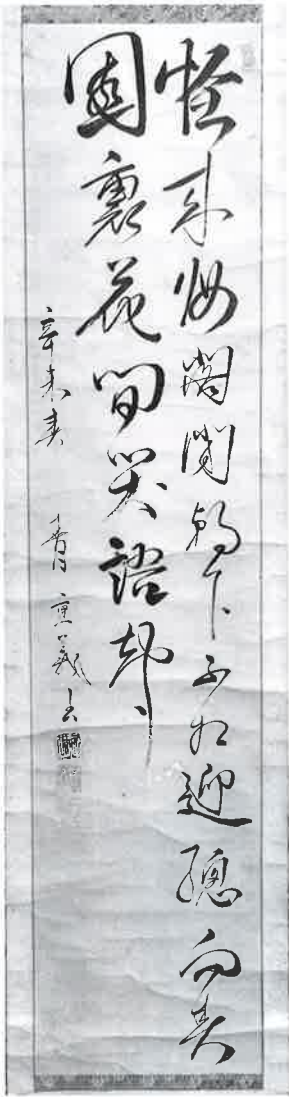 怪來妝閣閉朝下不相迎總向春
園裏花間笑語聲
辛未春